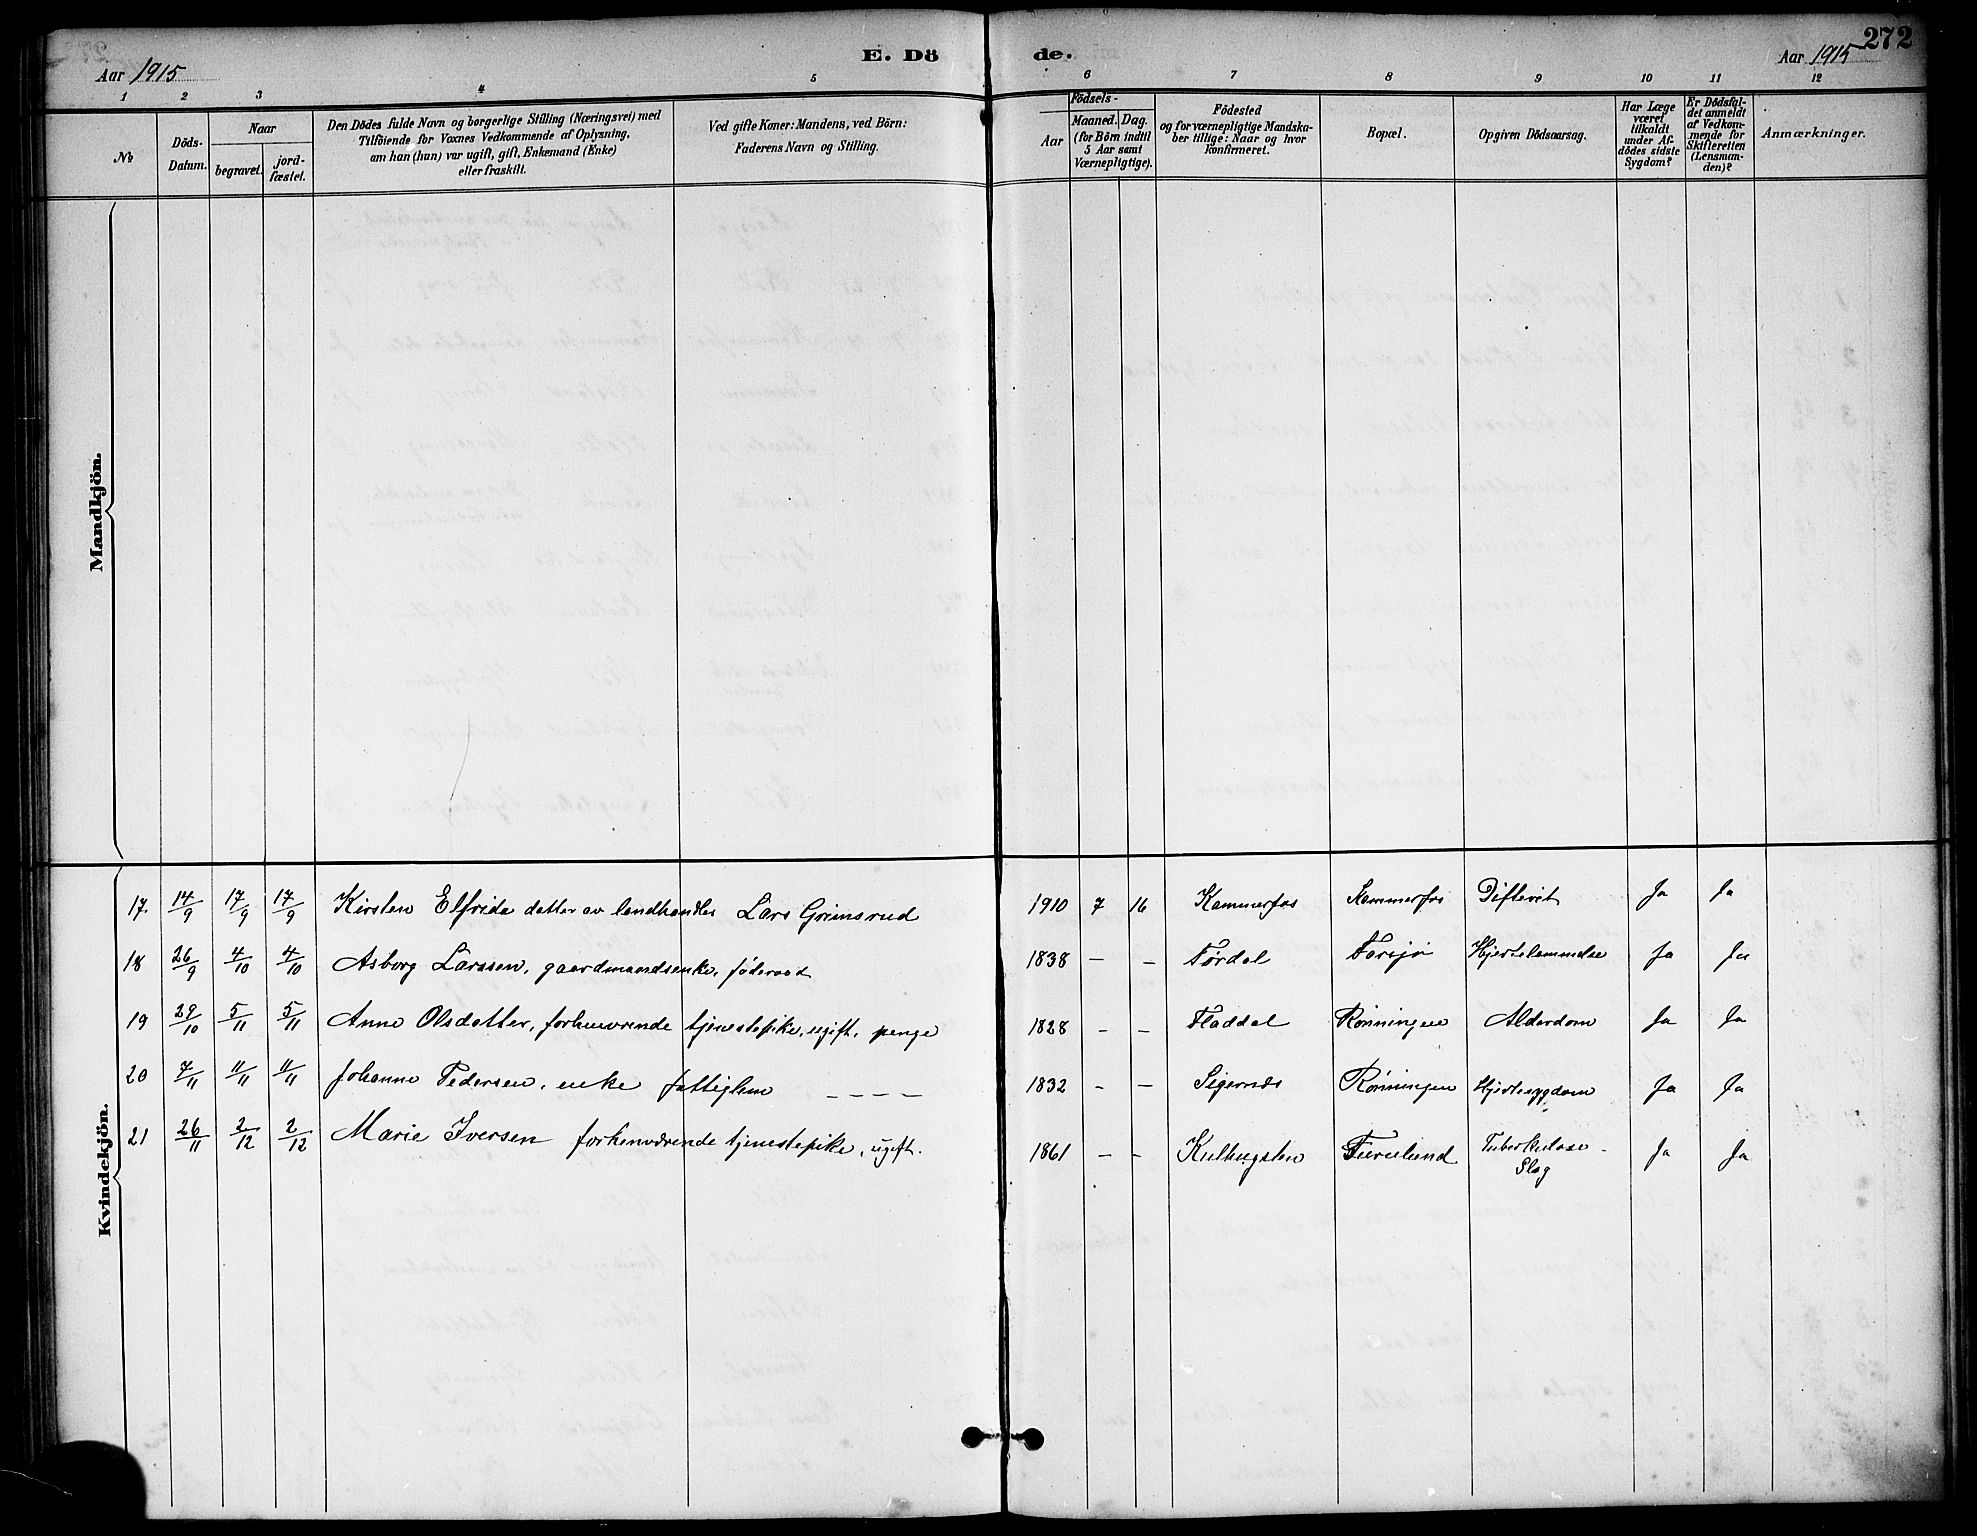 272
Aar 1915
E. Dö
de.
Aar 1915
1 2 3 4 5 6 7 8 9 10 11 12
No
Döds-
Datum.
Naar
begravet.
jord-
fæstet.
Den Dödes fulde Navn og borgerlige Stilling (Næringsvei) med
Tilföiende for Voxnes Vedkommende af Oplysning,
om han (hun) var ugift, gift, Enkemand (Enke)
eller fraskilt.
Ved gifte Koner: Mandens, ved Börn:
Faderens Navn og Stilling.
Födsels-
Aar
Maaned. Dag.
(for Börn indtil
5 Aar samt
Værnepligtige).
Födested
og for værnepligtige Mandska-
ber tillige: Naar og hvor
konfirmeret.
Bopæl.
Opgiven Dödsaarsag.
Har Læge
været
tilkaldt
under Af-
dödes sidste
Sygdom?
Er Dödsfal-
det anmeldt
af Vedkom-
mende for
Skifteretten
(Lensman-
den)?
Anmærkninger.
Mandkjön.
Kvindekjön.
17. 14/9 17/9 17/9 Kirsten Elfride datter av landhandler Lars Grimsrud 1910 7 16 Kammerfos Kammerfos Difterit Ja Ja
18 26/9 4/10 4/10 Asborg Larssen, gaardmandsenke, føderaad 1838 – – Tørdal Farsjø Hjertelammelse Ja Ja
19 29/10 5/11 5/11 Anne Olsdatter, forhenværende tjenestepike, ugift, penge 1828 – – Rønningen Alderdom Ja Ja
20 7/11 11/11 11/11 Johanne Pedersen, enke fattiglem – – – – 1832 – – Rønningen Hjertesygdom Ja Ja
21 26/11 2/12 2/12 Marie Iversen forhenværende tjenestepike, ugift. 1861 – – Furulund Tuberkulose Ja Ja
Slag